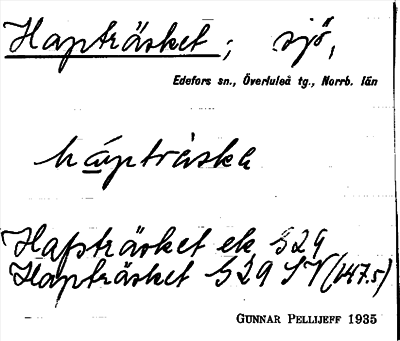 Hapträsket; sjö,
Edefors sn., Överluleå tg., Norrb. län
hápträska
Hafsträsket ek 529
Hapträsket 529 SV (147.5)
GUNNAR PELLIJEFF 1935